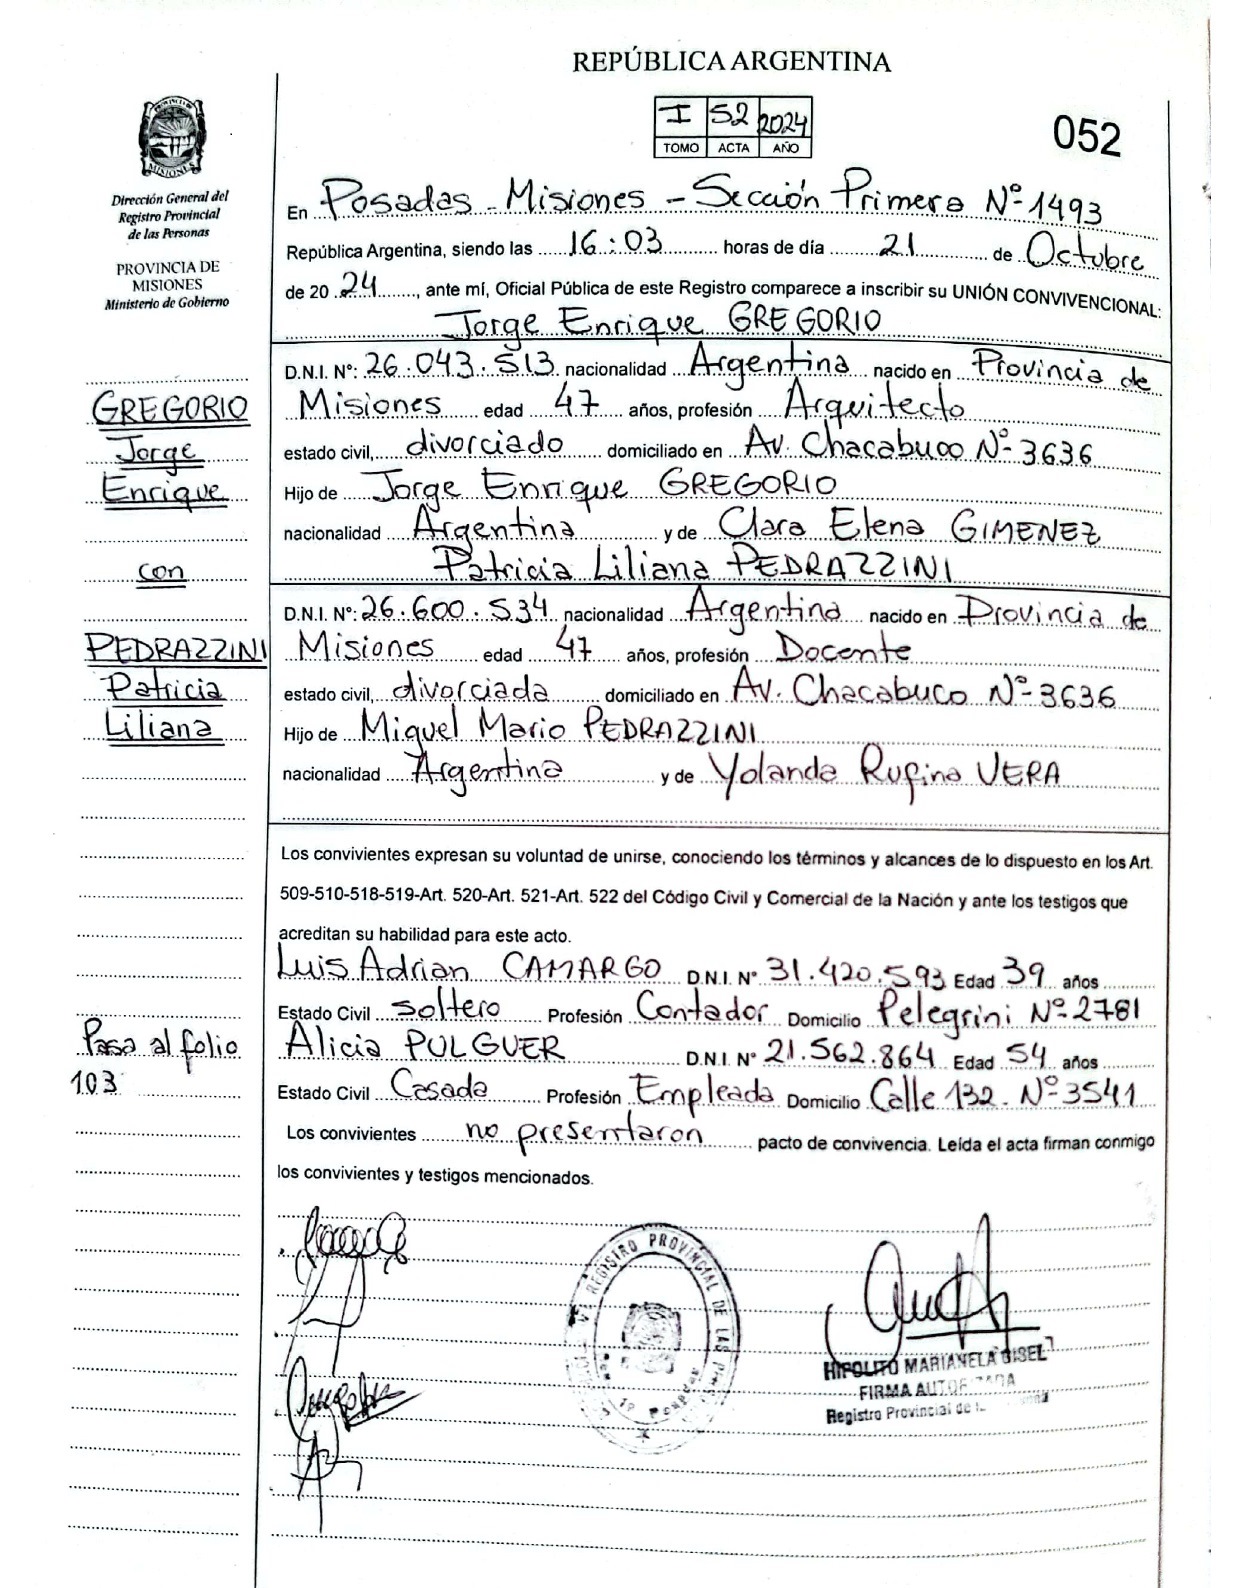 REPÚBLICA ARGENTINA
I 52 2024
TOMO ACTA AÑO
052
PROVINCIA DE
MISIONES
Dirección General del
Registro Provincial
de las Personas
PROVINCIA DE
MISIONES
Ministerio de Gobierno
En Posadas - Misiones - Sección Primera Nº 1493
República Argentina, siendo las 16:03 horas de día 21 de Octubre
de 20 24, ante mí, Oficial Pública de este Registro comparece a inscribir su UNIÓN CONVIVENCIONAL:
Jorge Enrique GREGORIO
D.N.I. Nº: 26.043.513 nacionalidad Argentina nacido en Provincia de
Misiones edad 47 años, profesión Arquitecto
estado civil, divorciado domiciliado en Av. Chacabuco Nº 3636
Hijo de Jorge Enrique GREGORIO
nacionalidad Argentina y de Clara Elena GIMENEZ
Patricia Liliana PEDRAZZINI
D.N.I. Nº: 26.600.534 nacionalidad Argentina nacido en Provincia de
Misiones edad 47 años, profesión Docente
estado civil, divorciada domiciliado en Av. Chacabuco Nº 3636
Hijo de Miguel Mario PEDRAZZINI
nacionalidad Argentina y de Yolanda Rufina VERA
GREGORIO
Jorge
Enrique
con
PEDRAZZINI
Patricia
Liliana
Los convivientes expresan su voluntad de unirse, conociendo los términos y alcances de lo dispuesto en los Art.
509-510-518-519-Art. 520-Art. 521-Art. 522 del Código Civil y Comercial de la Nación y ante los testigos que
acreditan su habilidad para este acto.
Luis Adrian CAMARGO D.N.I. Nº 31.420.593 Edad 39 años
Estado Civil soltero Profesión Contador Domicilio Pelegrini Nº 2781
Alicia PULGUER D.N.I. Nº 21.562.864 Edad 54 años
Estado Civil Casada Profesión Empleada Domicilio Calle 132. Nº 3541
Los convivientes no presentaron pacto de convivencia. Leída el acta firman conmigo
los convivientes y testigos mencionados.
Pasa al folio
103
REGISTRO PROVINCIAL DE LAS
HIPOLITO MARIANELA GISEL
FIRMA
Registro Provincial de